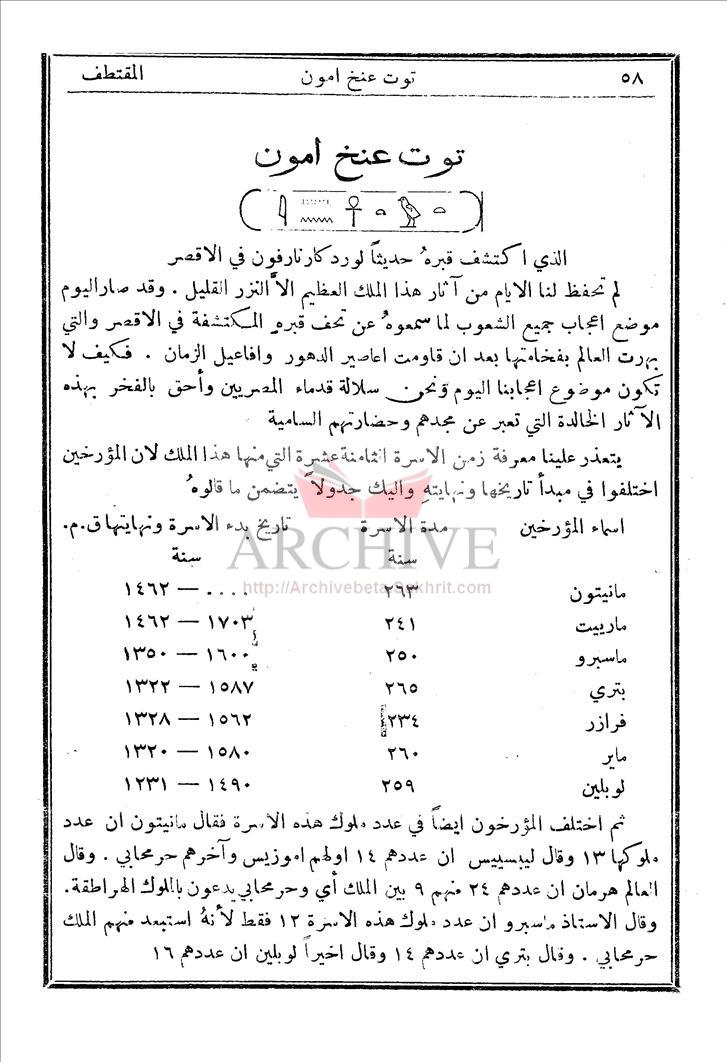 ٥٨ توت عنخ امون المقتطف
توت عنخ امون
الذي اكتشف قبرهُ حديثاً لورد كارنارفون في الاقصر
لم تحفظ لنا الايام من آثار هذا الملك العظيم الاَّ النزر القليل . وقد صار اليوم
موضع اعجاب جميع الشعوب لما سمعوهُ عن تحف قبرهِ المكتشفة في الاقصر والتي
بهرت العالم بفخامتها بعد ان قاومت اعاصير الدهور وافاعيل الزمان . فكيف لا
تكون موضوع اعجابنا اليوم ونحن سلالة قدماء المصريين وأحق بالفخر بهذه
الآثار الخالدة التي تعبر عن مجدهم وحضارتهم السامية
يتعذر علينا معرفة زمن الاسرة الثامنة عشرة التي منها هذا الملك لان المؤرخين
اختلفوا في مبدأ تاريخها ونهايتهِ واليك جدولاً يتضمن ما قالوهُ
اسماء المؤرخين مدة الاسرة تاريخ بدء الاسرة ونهايتها ق.م.
سنة سنة
ARCHIVE
http://Archivebeta.Sakhrit.com
مانيتون ٢٦٣ .... — ١٤٦٢
مارييت ٢٤١ ١٧٠٣ — ١٤٦٢
ماسبرو ٢٥٠ ١٦٠٠ — ١٣٥٠
بتري ٢٦٥ ١٥٨٧ — ١٣٢٢
فرازر ٢٣٤ ١٥٦٢ — ١٣٢٨
ماير ٢٦٠ ١٥٨٠ — ١٣٢٠
لوبلين ٢٥٩ ١٤٩٠ — ١٢٣١
ثم اختلف المؤرخون ايضاً في عدد ملوك هذه الاسرة فقال مانيتون ان عدد
ملوكها ١٣ وقال ليبسييس ان عددهم ١٤ اولهم اموزيس وآخرهم حرمحابي . وقال
العالم هرمان ان عددهم ٢٤ منهم ٩ بين الملك أي وحرمحابي يدعون بالملوك الهراطقة.
وقال الاستاذ ماسبرو ان عدد ملوك هذه الاسرة ١٢ فقط لأنهُ استبعد منهم الملك
حرمحابي . وقال بتري ان عددهم ١٤ وقال اخيراً لوبلين ان عددهم ١٦